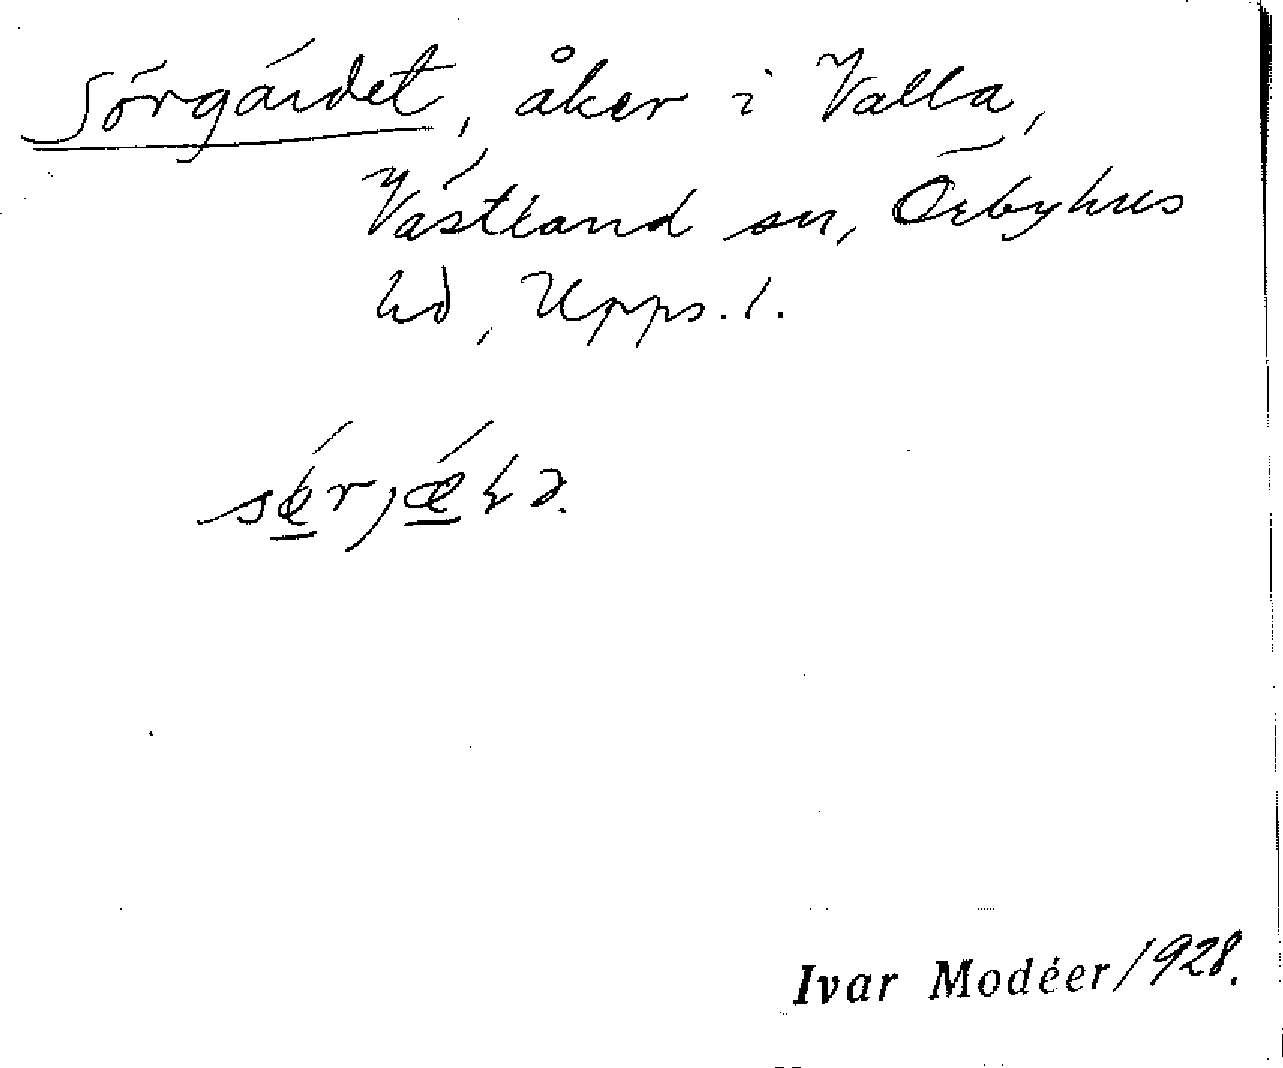 Sörgärdet, åker i Valla,
Västland sn, Örbyhus
hd, Upps. l.
Ivar Modéer/1928.